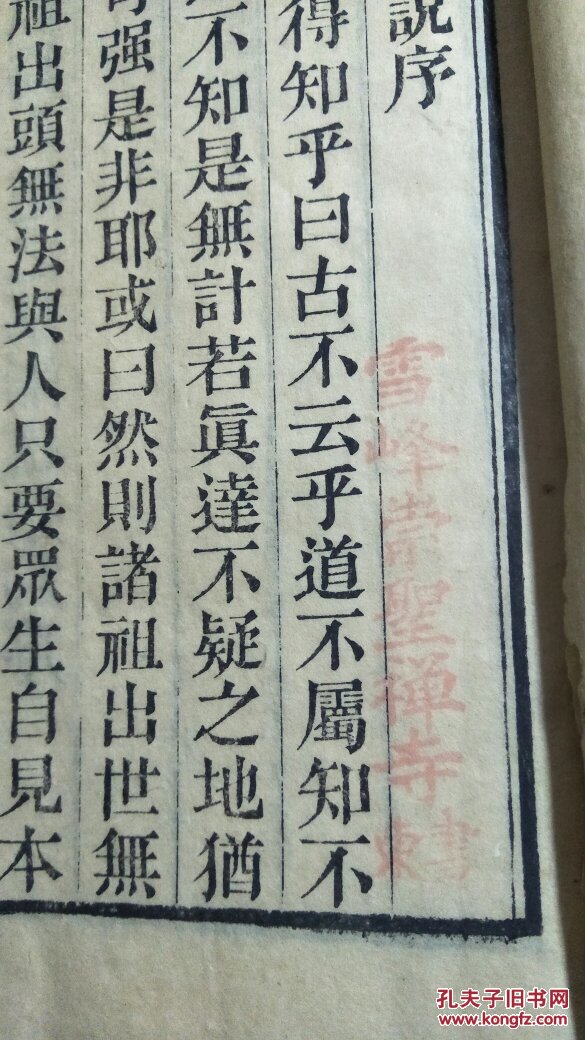 說序
得知乎曰古不云乎道不屬知不
不知是無計若眞達不疑之地猶
强是非耶或曰然則諸祖出世無
祖出頭無法與人只要眾生自見本
雪峰崇聖禅寺
孔夫子旧书网
www.kongfz.com